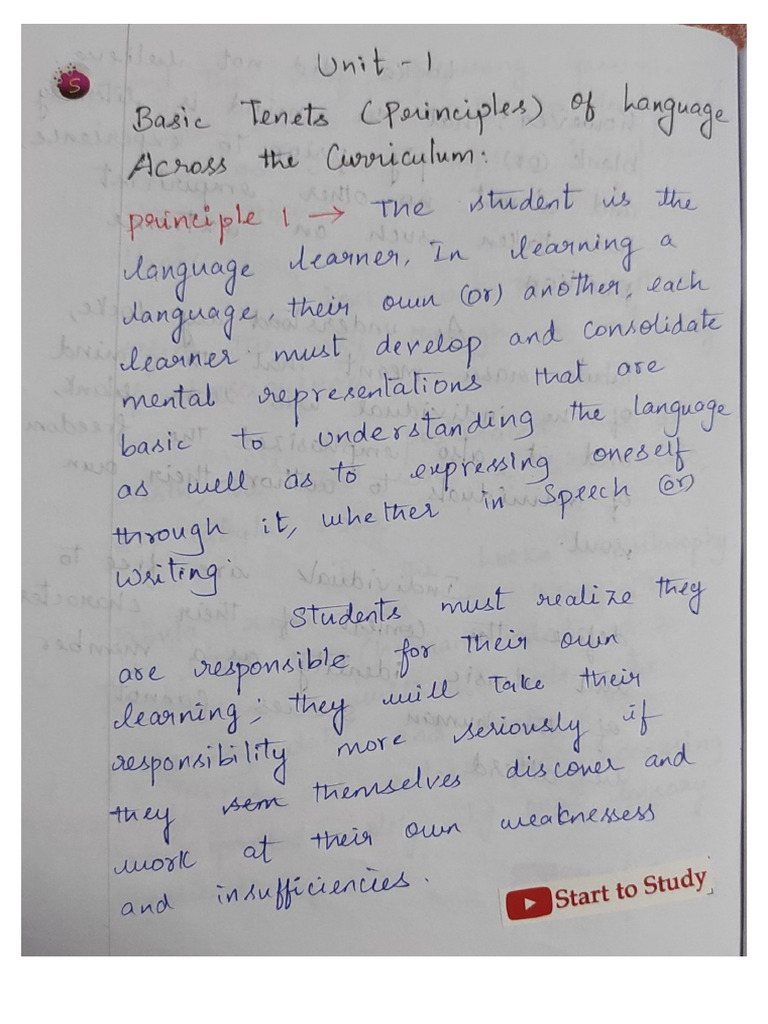 Unit - 1
S
Basic Tenets (Principles) of Language
Across the Curriculum:
Principle 1 → The student is the
language learner. In learning a
language, their own (or) another, each
learner must develop and consolidate
mental representations that are
basic to understanding the language
as well as to expressing oneself
through it, whether in Speech (or)
writing.
Students must realize they
are responsible for their own
learning; they will take their
responsibility more seriously if
they sem themselves discover and
work at their own weaknessess
and insufficiencies.
Start to Study